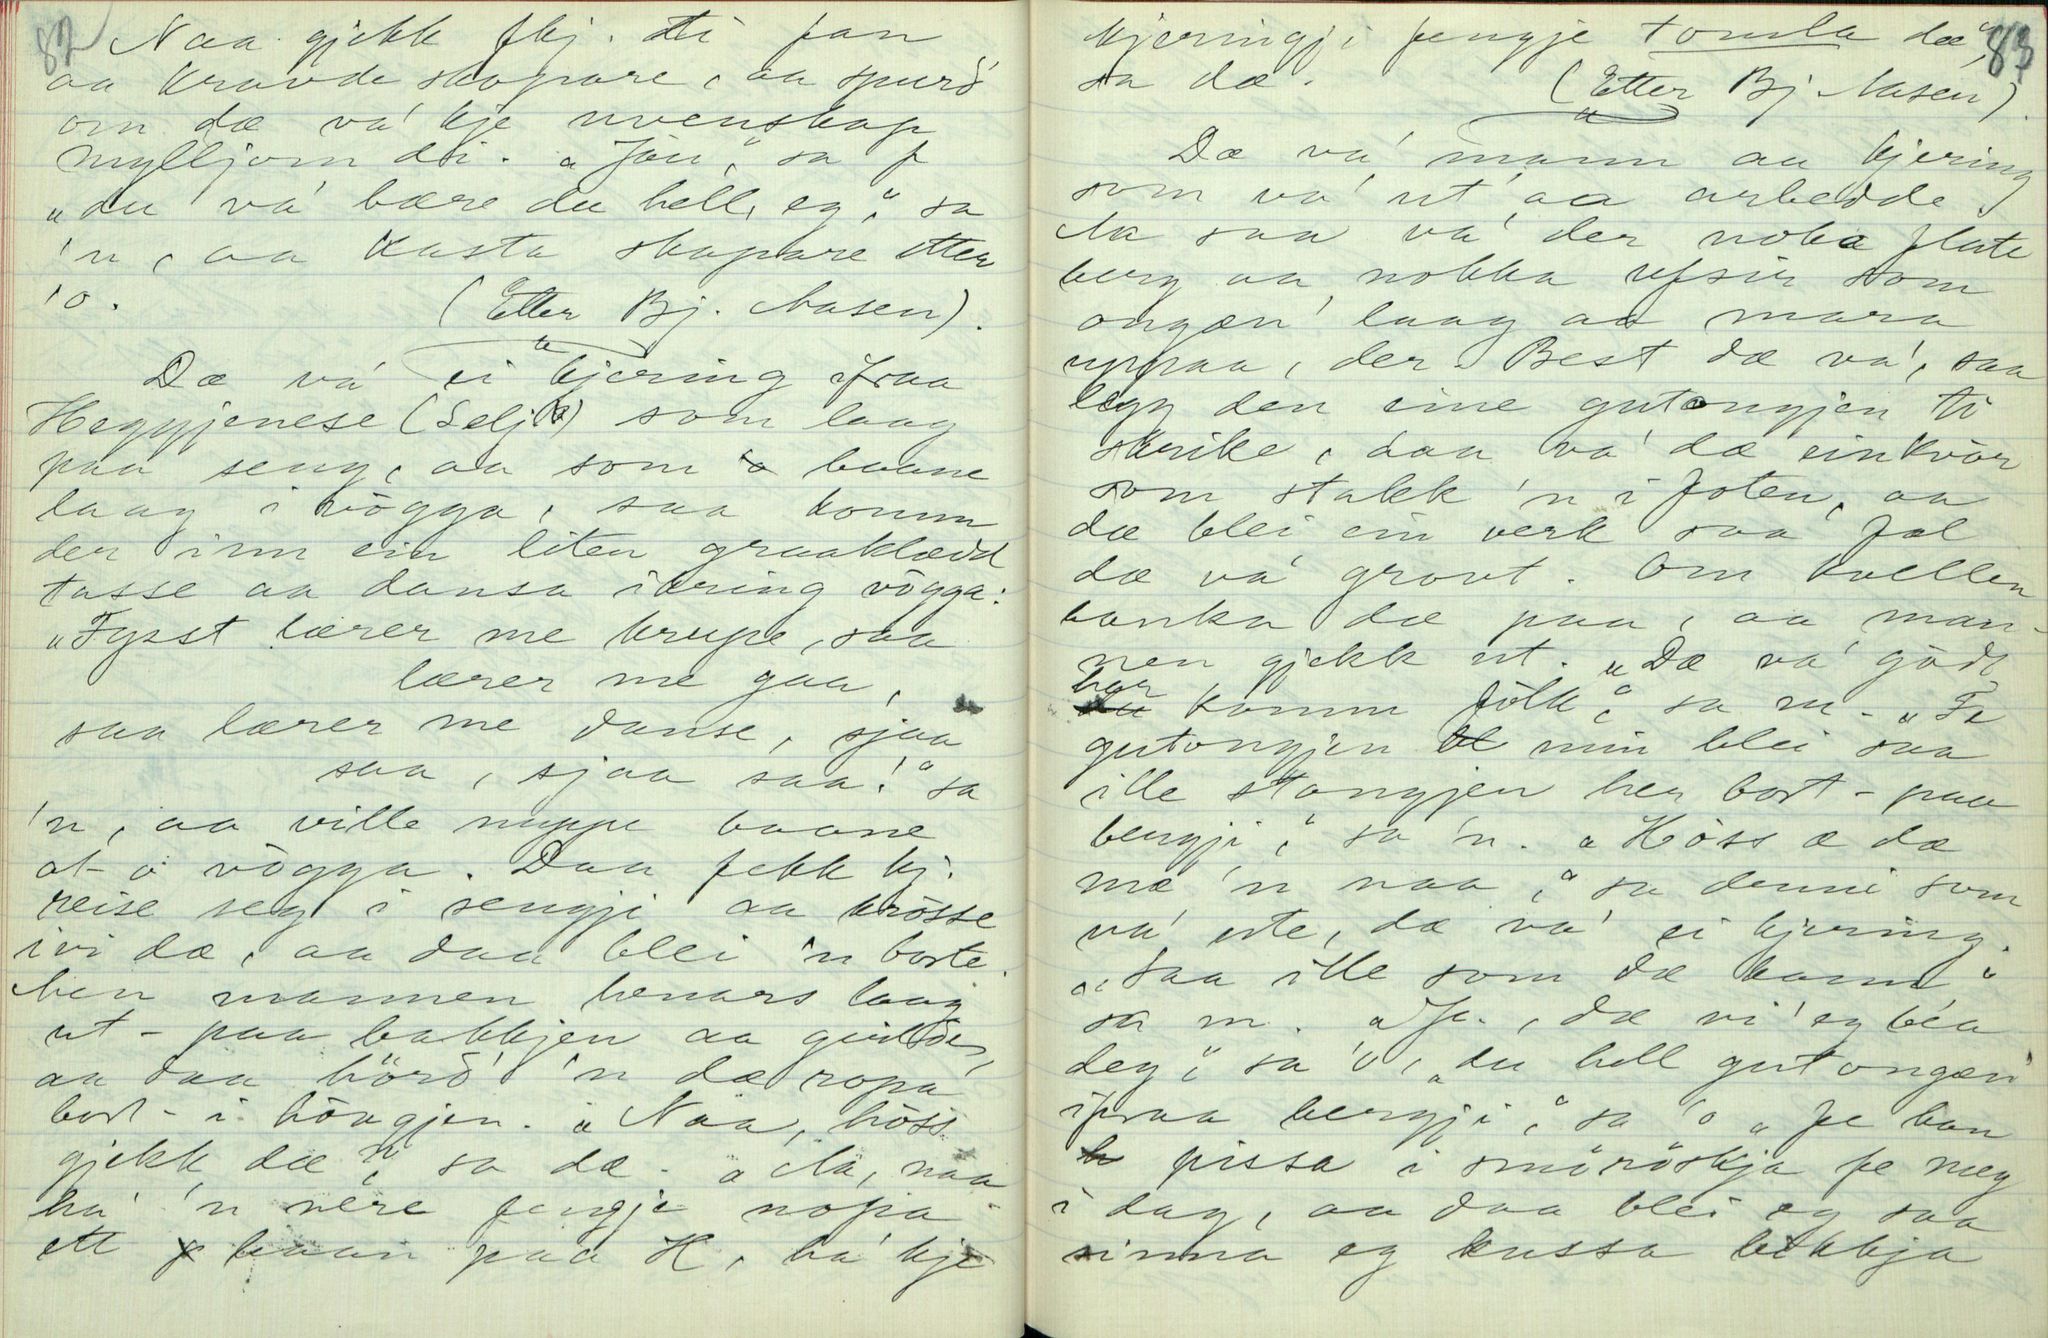 82
Naa gjekk fkj. ti fan
aa kravde skopare, aa spurd'
om dæ va' kje uvenskap
myllj̄om dei. "Jau," sa f
"du va' bære du hell, eg," sa
'n, aa kasta skapare etter
'o. (Etter Bj. Aasen).
Dæ va' ei kjering ifraa
Heggjenese (Selj.) som laag
paa seng, aa som 'o baane
laag i vögga, saa komm
der inn ein liten graaklædd
tasse aa dansa ikring vögga:
"Fysst lærer me krupe, saa
lærer me gaa,
saa lærer me danse, sjaa
saa, sjaa saa!" sa
'n, aa ville nuppe baane
ot-o vögga. Daa fekk kj.
reise seg i sengji aa krösse
ivi dæ, aa daa blei 'n borte.
Men mannen henars laag
ut-paa bakkjen aa
aa daa hörd' 'n dæ ropa
bort-i haugjen. "Naa, höss
gjekk dæ," sa dæ. "Aa, naa
ha' 'n vére fengje nopa
ett baan paa H, ha' kje
83
kjeringji fengje tomla dæ,"
sa dæ. (Etter Bj. Aasen).
Dæ va' mann aa kjering
som va' ut aa arbedde.
Aa saa va' der noko flate
berg aa nokka ufsir som
ongæn' laag aa mara
uppaa, der. Best dæ va', saa
legg den eine gutongjen ti
skrike, daa va' dæ einkvör
som stakk 'n i foten, aa
dæ blei ein verk saa fæl
dæ va' grovt. Om kvellen
banka dæ paa, aa man-
nen gjekk ut. "Dæ va' godt
her komm folk," sa m. "Fe
gutongjen min blei saa
ille stongjen her bort-paa
bergji," sa 'n. "Höss æ dæ
mæ 'n naa," sa denni som
va' ute, dæ va' ei kjering.
"Saa ille som dæ kann,"
sa m. "Ja, dæ vi' eg béa
deg," sa 'o, "du hell gutongæn'
ifraa bergji," sa 'o "fe han
pissa i smöröskja fe meg
i dag, aa daa blei eg saa
sinna eg kussa bikkja